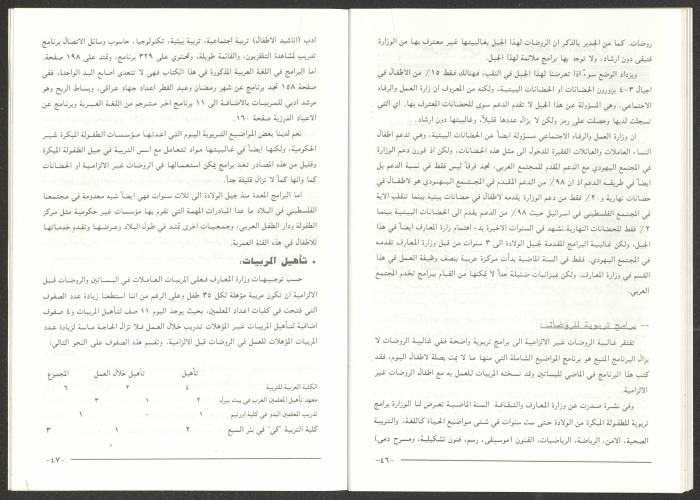 روضات. كما من الجدير بالذكر ان الروضات لهذا الجيل بغالبيتها غير معترف بها من الوزارة
فتبقى دون ارشاد، ولا توجد بها برامج ملائمة لهذا الجيل.
ويزداد الوضع سوءً اذا تعرضنا لهذا الجيل في النقب، فهنالك فقط ١٥٪ من الاطفال في
اجيال ٣-٤ يزورون الحضانات او الحضانات البيتية، ولكنه من المعروف ان وزارة العمل والرفاه
الاجتماعي، وهي المسؤولة عن هذا الجيل لا تقدم الدعم سوى للحضانات المعترف بها، اي التي
تسجلت لديها وحصلت على رمز ولكن لا يزال عددها قليلاً، وغالبيتها دون ارشاد.
ان وزارة العمل والرفاه الاجتماعي مسؤولة ايضاً عن الحضانات البيتية، وهي تدعم اطفال
النساء العاملات والعائلات الفقيرة للدخول الى مثل هذه الحضانات، ولكن اذ قورن دعم الوزارة
في المجتمع اليهودي مع الدعم المقدم للمجتمع العربي، نجد فرقاً ليس فقط في نسبة الدعم بل
ايضاً في طريقه الدعم اذ ان ٩٨٪ من الدعم المقدم في المجتمع اليهودي هو لاطفال في
حضانات نهارية و ٢٠٪ فقط من دعم الوزارة يقدمه لاطفال في حضانات بيتية بينما تنقلب الاية
في المجتمع الفلسطيني في اسرائيل حيث ٩٨٪ من الدعم يقدم الى الحضانات البيتية بينما
٢٪ فقط للحضانات النهارية. نشهد في السنوات الاخيرة بدء اهتمام وزارة المعارف ايضاً في هذا
الجيل، ولكن غالبية البرامج المقدمة لجيل الولادة الى ٣ سنوات من قبل وزارة المعارف تقدمه
في المجتمع اليهودي. فقط في السنة الماضية بدأت مركزة عربية بنصف وظيفة العمل في هذا
القسم في وزارة المعارف، ولكن بميزانيات ضئيلة جداً لا تمكنها من القيام ببرامج تخدم المجتمع
العربي.
-- برامج تربوية للروضات:
تفتقر غالبية الروضات غير الالزامية الى برامج تربوية واضحة ففي غالبية الروضات لا
يزال البرنامج المتبع هو برنامج المواضيع الشاملة التي منها ما لا يمت بصلة لاطفال اليوم، فقد
كتب هذا البرنامج في الماضي للبساتين وقد نسخته المربيات للعمل به مع اطفال الروضات غير
الالزامية.
وفي نشرة صدرت عن وزارة المعارف والثقافة السنة الماضية تعرض لنا الوزارة برامج
تربوية للطفولة المبكرة من الولادة حتى ست سنوات في شتى مواضيع الحياة كاللغة، والتربية
الصحية، الامن، الرياضة، الرياضيات، الفنون (موسيقى، رسم، فنون تشكيلية، ومسرح دمى)
-٤٦-
ادب (اناشيد الاطفال) تربية اجتماعية، تربية بيئية، تكنولوجيا، حاسوب وسائل الاتصال برنامج
تدريب لمشاهدة التلفزيون، والقائمة طويلة، وتحتوي على ٣٢٩ برنامج، وتمتد على ١٩٨ صفحة.
اما البرامج في اللغة العربية المذكورة في هذا الكتاب فهي لا تتعدى اصابع اليد الواحدة، ففي
صفحة ١٥٨ نجد برنامج عن شهر رمضان وعيد الفطر اعداد جهاد عراقي، وبساط الريح وهو
مرشد ادبي للمربيات بالاضافة الى ١١ برنامج اخر مترجم من اللغة العبرية وبرنامج عن
الاعياد الدرزية صفحة ١٦٠.
نعم لدينا بعض المواضيع التربوية اليوم التي اعدتها مؤسسات الطفولة المبكرة غير
الحكومية، ولكنها ايضاً في غالبيتها مواد تتعامل مع اسس التربية في جيل الطفولة المبكرة
وقليل من هذه المصادر نعد برامج يمكن استعمالها في الروضات غير الالزامية او الحضانات
كما وانها كماً لا تزال قليلة جداً.
اما البرامج المعدة منذ جيل الولادة الى ثلاث سنوات فهي ايضاً شبه معدومة في مجتمعنا
الفلسطيني في البلاد ما عدا المبادرات المهمة التي تقوم بها مؤسسات غير حكومية مثل مركز
الطفولة ودار الطفل العربي، وجمعيات اخرى تمتد في طول البلاد وعرضها وتقدم خدماتها
للاطفال في هذه الفئة العمرية.
• تأهيل المربيات:
حسب توجيهات وزارة المعارف فعلى المربيات العاملات في البساتين والروضات قبل
الالزامية ان تكون مربية مؤهلة لكل ٣٥ طفل وعلى الرغم من اننا استطعنا زيادة عدد الصفوف
التي فتحت في كليات اعداد المعلمين، بحيث يوجد اليوم ١١ صف لتأهيل المربيات و٤ صفوف
اضافية لتأهيل المربيات غير المؤهلات تدريب خلال العمل فلا تزال الحاجة ماسة لزيادة عدد
المربيات المؤهلات للعمل في الروضات قبل الالزامية، وتقسم هذه الصفوف على النحو التالي:
تأهيل تأهيل خلال العمل المجموع
الكلية العربية للتربية ٤ ٢ ٦
معهد تأهيل المعلمين العرب في بيت بيرل ٢ ١ ٣
تدريب المعلمين البدو في كلية اورنيم ١ - ١
كلية التربية "كي" في بئر السبع ٢ ١ ٣
-٤٧-